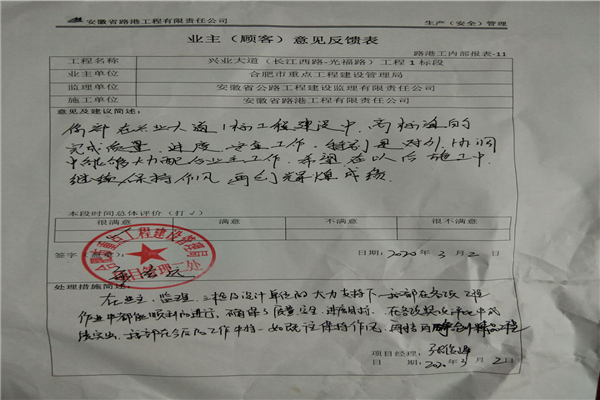 安徽省路港工程有限责任公司 生产（安全）管理
业主（顾客）意见反馈表
路港工内部报表-11
工程名称 兴业大道（长江西路-光福路）工程1标段
业主单位 合肥市重点工程建设管理局
监理单位 安徽省公路工程建设监理有限责任公司
施工单位 安徽省路港工程有限责任公司
意见及建议简述：
你部在兴业大道1标工程建设中，高标准的
完成质量、进度、安全工作，特别是对外协调
中能够大力配合业主工作，希望在以后施工中
继续保持作风，再创辉煌成绩
本段时间总体评价（打√）
很满意 满意 不满意 很不满意
签字（盖章）： 日期：2020年3月2日
合肥市重点工程建设管理局
项目管理二处
处理措施简述：
在业主、监理、及设计单位的大力支持下
作中都能顺利的进行，确保了质量、安全、进度目标
我部在今后的工作中将一如既往保持作风
项目经理：
日 期：2020年3月2日